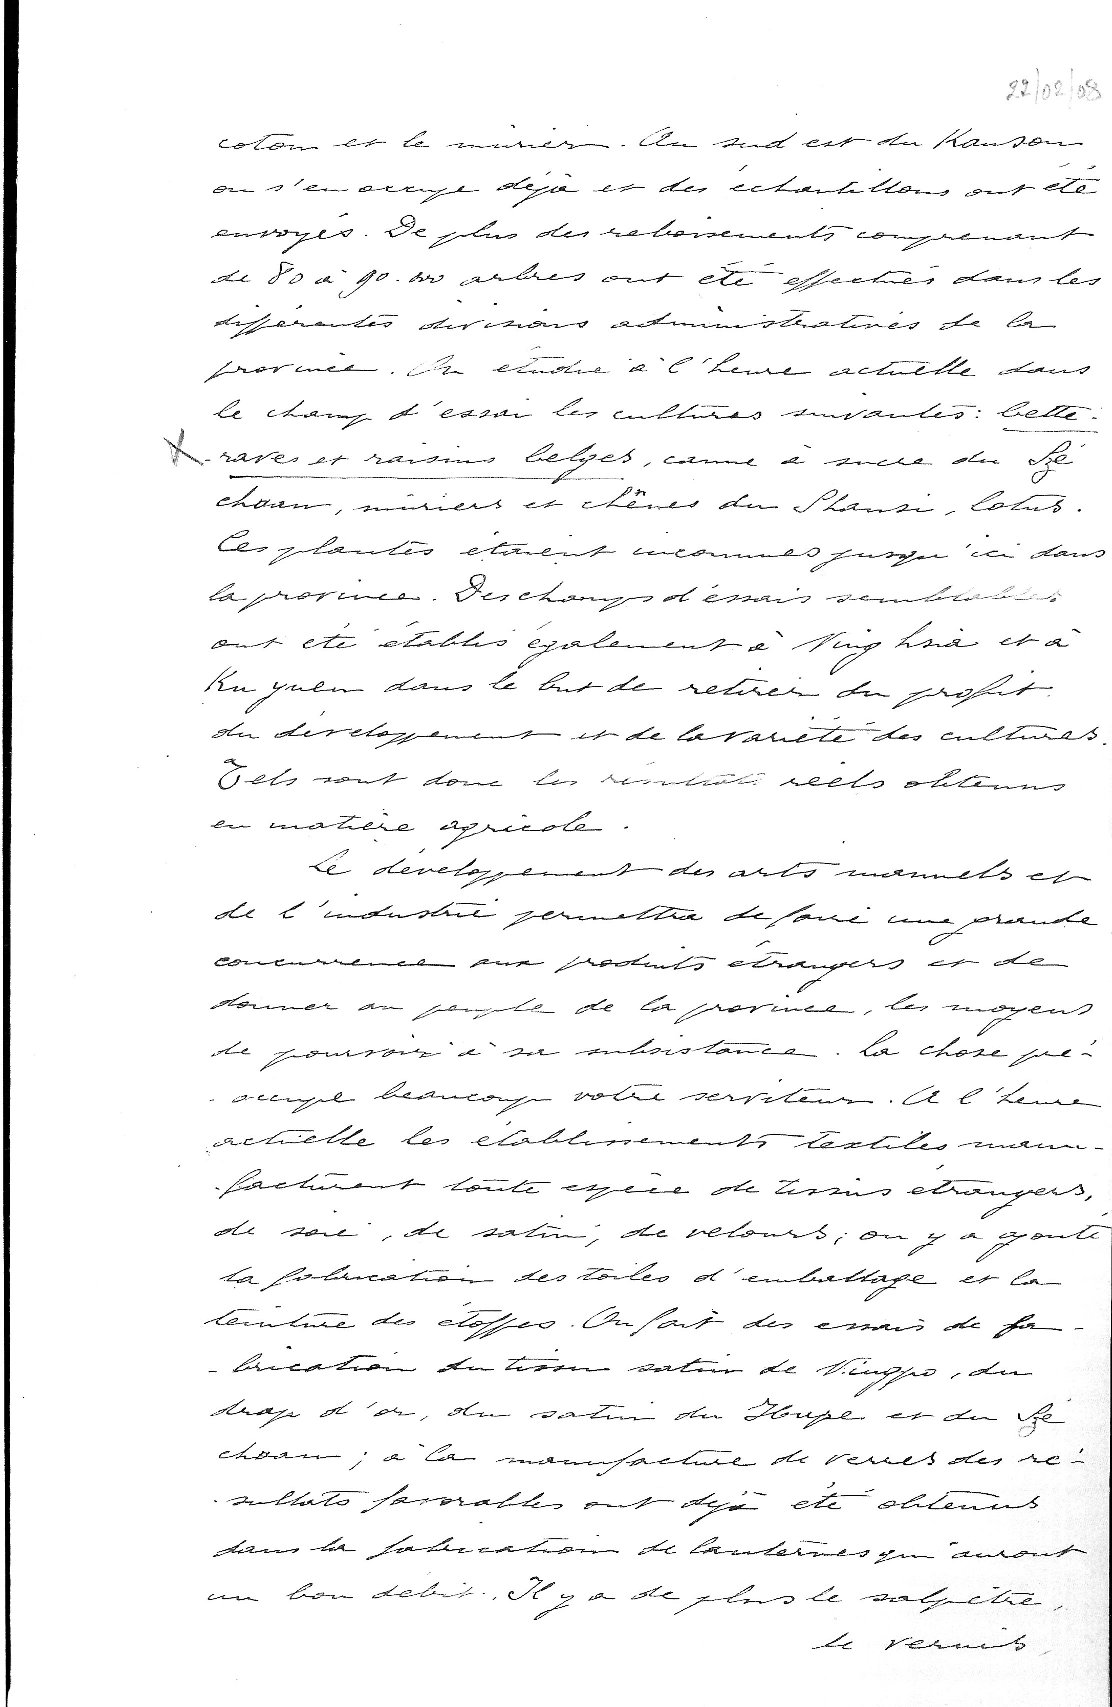 22/02/08
coton et le mûrier. Au sud est du Kansou
on s'en occupe déjà et des échantillons ont été
envoyés. De plus des reboisements comprenant
de 80 à 90.000 arbres ont été effectués dans les
différentes divisions administratives de la
province. On étudie à l'heure actuelle dans
le champ d'essai les cultures suivantes: bette-
-raves et raisins belges, canne à sucre du Sze
chuan, mûriers et chênes du Shansi, lotus.
Ces plantes étaient inconnues jusqu'ici dans
la province. Des champs d'essais semblables
ont été établis également à Ning hsia et à
Ku yuen dans le but de retirer du profit
du développement et de la variété des cultures.
Tels sont donc les résultats réels obtenus
en matière agricole.
Le développement des arts manuels et
de l'industrie permettra de faire une grande
concurrence aux produits étrangers et de
donner au peuple de la province, les moyens
de pourvoir à sa subsistance. La chose pré-
-occupe beaucoup votre serviteur. A l'heure
actuelle les établissements textiles manu-
-facturent toute espèce de tissus étrangers,
de soie, de satin, de velours; on y a ajouté
la fabrication des toiles d'emballage et la
teinture des étoffes. On fait des essais de fa-
-brication du tissu satin de Ningpo, du
drap d'or, du satin du Hupe et du Sze
chuan; à la manufacture de verres des ré-
-sultats favorables ont déjà été obtenus
dans la fabrication de lanternes qui auront
un bon débit. Il y a de plus le salpêtre,
le vernis,